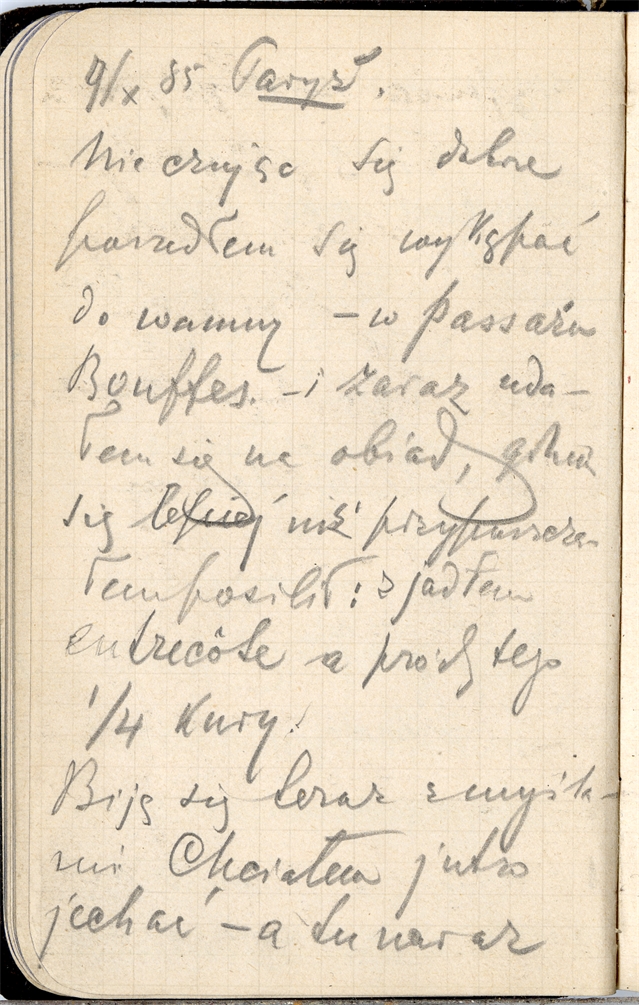 9/x 85 Paryż.
Nie czując się dobrze
poszedłem się wykąpać
do wanny – w Passażu
Bouffes. – i zaraz uda-
łem się na obiad, gdzie
się lepiej niż przypuszcza-
łem posilił: zjadłem
entrecôte a prócz tego
1/4 kury.
Biję się teraz z myśla-
mi Chciałem jutro
jechać – a tu naraz